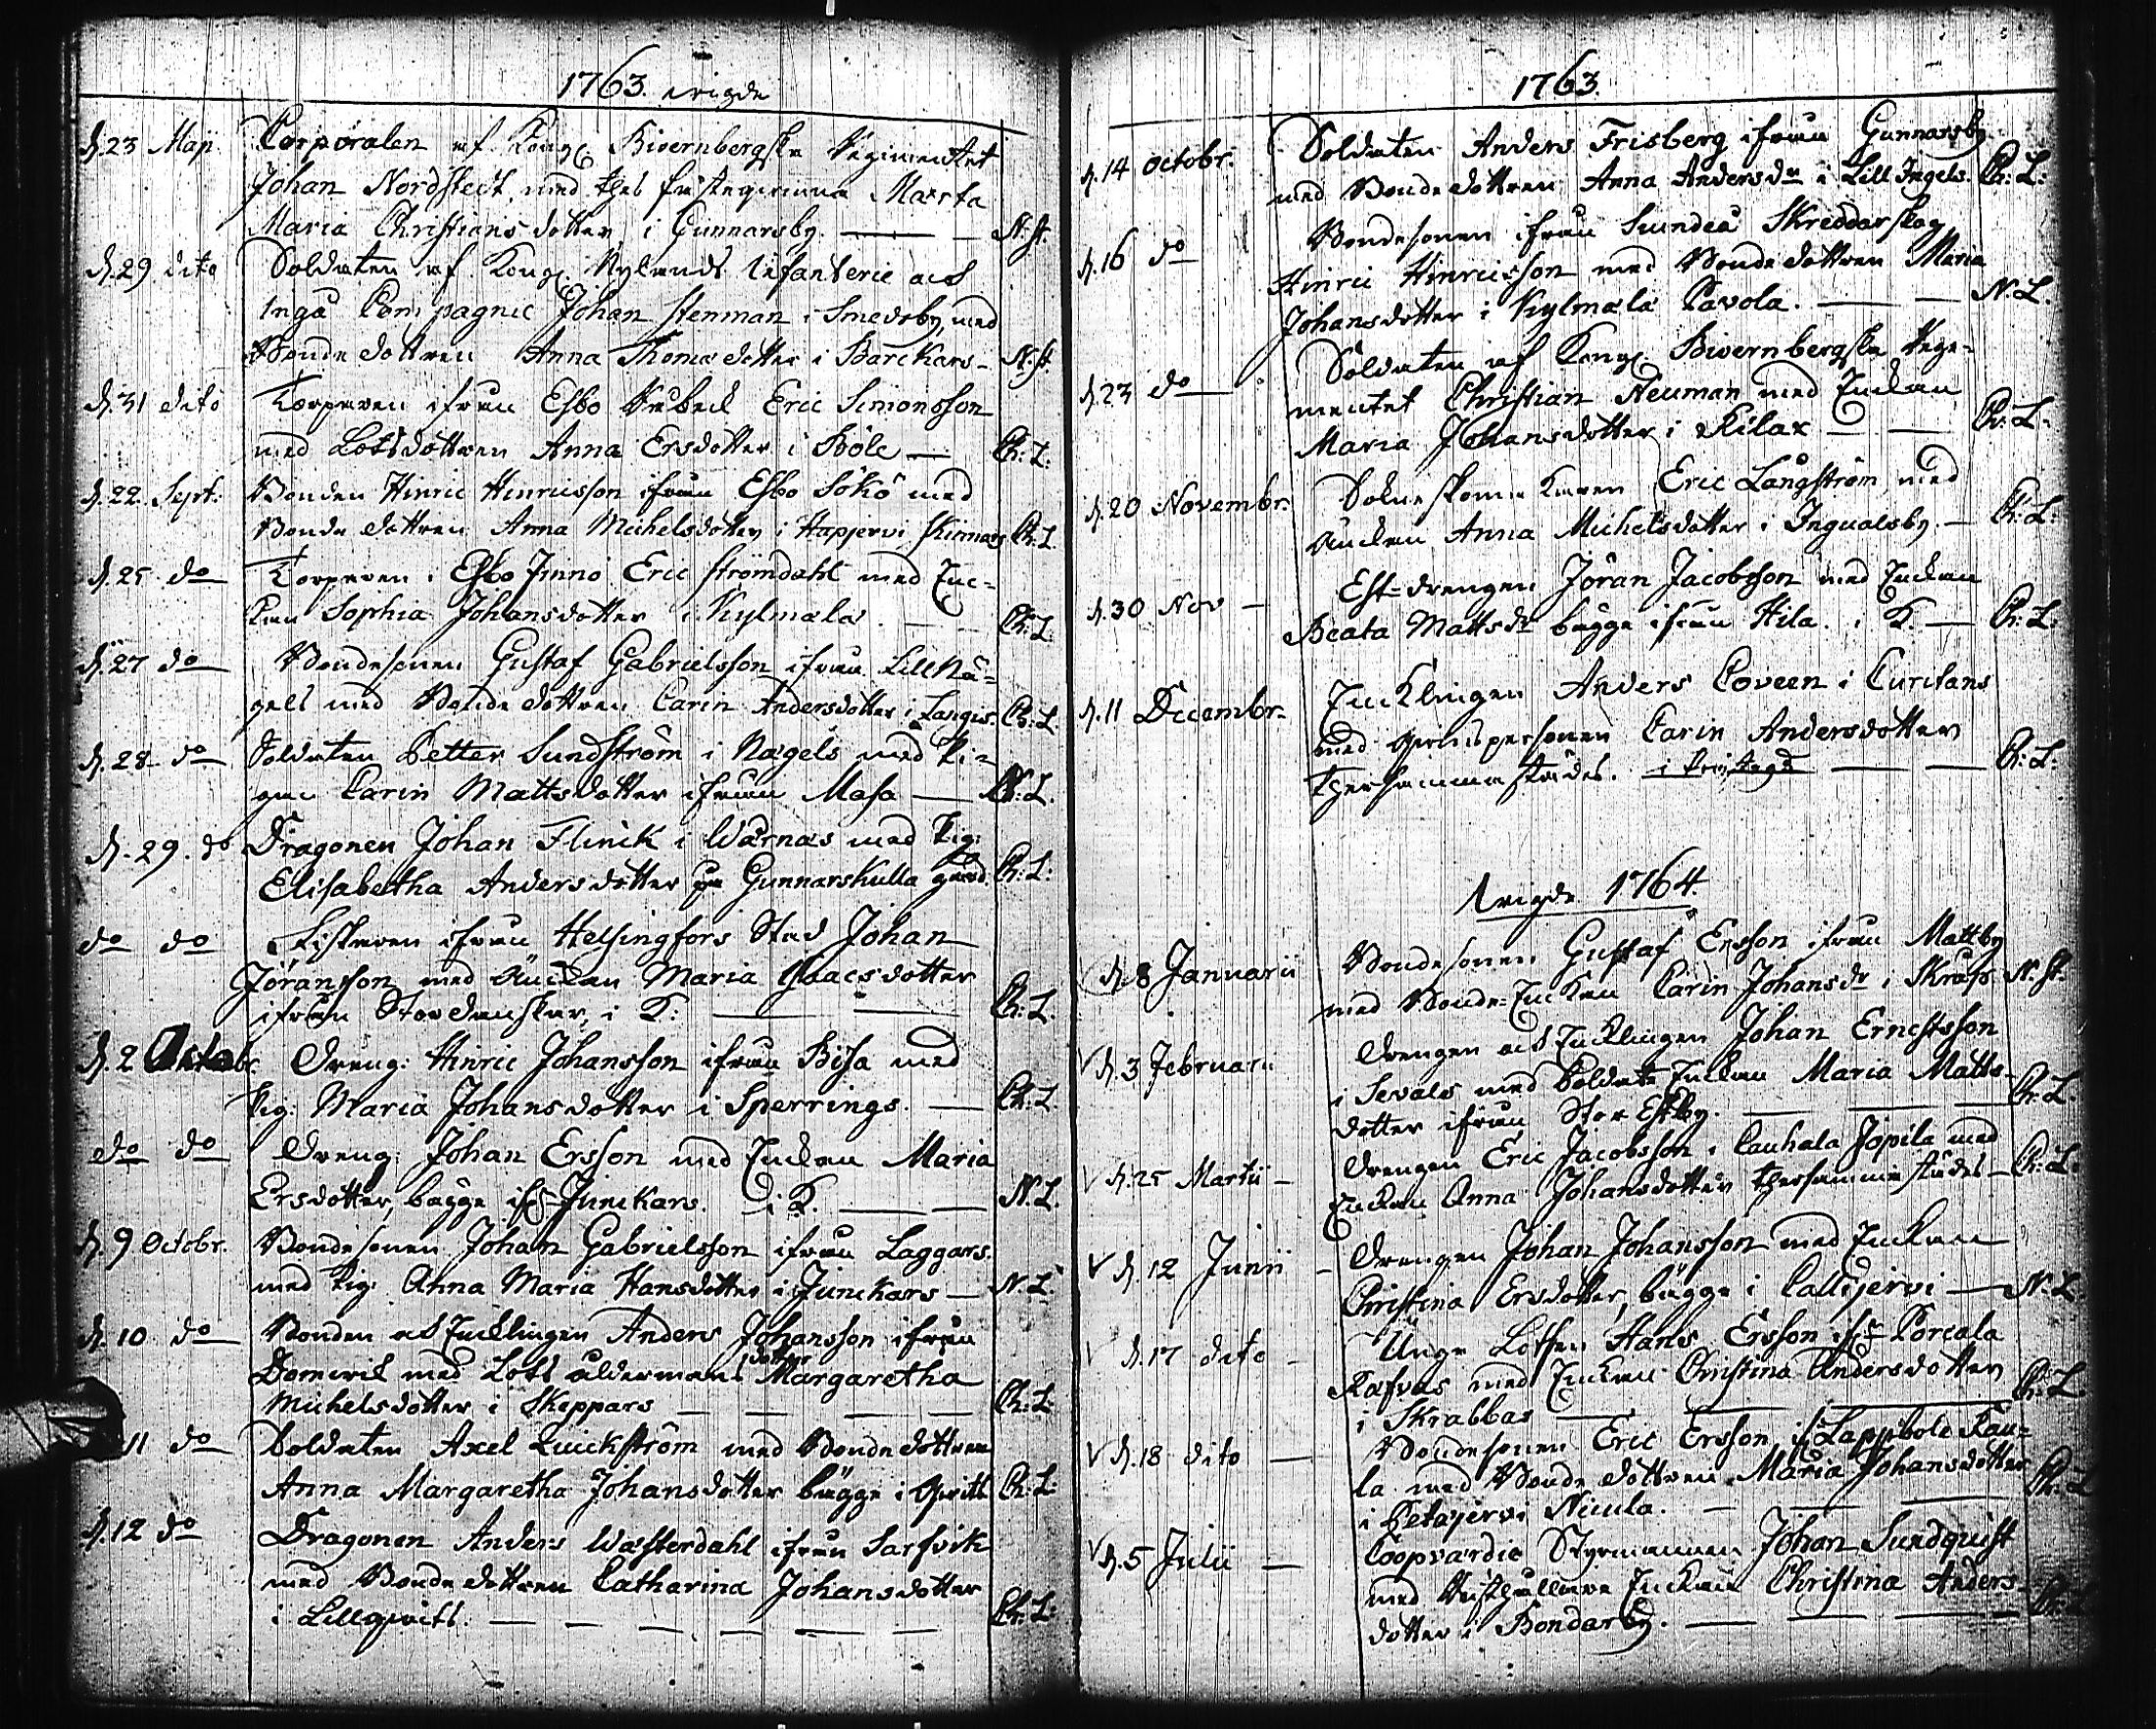 1763. wigde
d. 23 Maji. Corporalen af Kongl. Biörnbergska Regimentet
Johan Nordstedt med thes fästeqvinna Maria
Maria Christiansdotter i Gunnarsby. N. st.
d. 29 dito Soldaten af Kongl. Nylands Infanterie och
Ingå Compagnie Johan Stenman i Smedsby, med
Bonde dottren Anna Thomædotter i Barckars N. st.
d. 31 dito Torparen ifrån Esbo Eric Simonsson
med Lotsdottren Anna Ersdotter i Böle Ch: L:
d. 22 Sept: Bonden Hinric Hinricsson ifrån Esbo Sökö med
Bonde dottren Anna Michelsdotter i Hapjervi Skinnars Ch: L.
d. 25 do Torparen i Esbo Finnö Eric Strömdahl med Enc-
kan Sophia Johansdotter i Kylmala. Ch: L.
d. 27 do Bondesonen Gustaf Gabrielsson ifrån Lill Nä-
gels med Bonde dottren Carin Andersdotter i Langis Ch: L.
d. 28 do Soldaten Petter Sundström i Nägels med Pi-
gan Carin Mattsdotter ifrån Masa Ch: L.
d. 29. do Dragonen Johan Flinck i Wärnäs med Pig:
Elisabetha Andersdotter på Gunnarskulla gård. Ch: L:
do do Fiskaren ifrån Helsingfors Stad Johan
Jöransson med Änckan Maria Isaacsdotter
ifrån Stor i K: Ch: L.
d. 2 Octobr. Dreng: Hinric Johansson ifrån Bisa med
Pig: Maria Johansdotter i Sperrings. Ch: L.
do do Dreng: Johan Ersson med Enckan Maria
Ersdotter, bägge ifr. Junckars. i K. N. L.
d. 9 Octobr. Bondesonen Johan Gabrielsson ifrån Laggars.
med Pig: Anna Maria Hansdotter i Junckars N. L.
d. 10 do Bonden och Encklingen Anders Johansson ifrån
Domwik med Lots åldermans dotter Margaretha
Michelsdotter i Skeppars Ch: L:
11 do Soldaten Axel Quickström med Bonde dottren
Anna Margaretha Johansdotter bägge i Ch: L:
d. 12 do Dragonen Anders Wästerdahl ifrån Sarfvik
med Bonde dottren Catharina Johansdotter
i Ch: L:
1763.
d. 14 Octobr: Soldaten Anders Frisberg ifrån Gunnarsby
med Bonde dottren Anna Andersdr i Lill Ingels. Ch: L:
d. 16 do Bondesonen ifrån Sundeå Skreddarskog
Hinric Hinricsson med Bonde dottren Maria
Johansdotter i Kylmala Pavola. N. L.
d. 23 do Soldaten af Kongl. Biörnbergska Rege-
mentet Christian Neuman med Enckan
Maria Johansdotter i Kilax Ch: L.
d. 20 Novembr. Eric Långström med
Änckan Anna Michelsdotter i Ingvalsby. Ch: L:
d. 30 Nov Est-drengen Jöran Jacobsson med Enckan
Beata Mattsdr bägge ifrån Hila. i K. Ch: L:
d. 11 Decembr. Encklingen Anders Coveen i Curclans
med Carin Andersdotter
thersammastädes. Ch: L:
Wigde 1764.
d. 8 Januarii Bondesonen Gustaf Ersson ifrån Mattby
med Bonde-Enckan Carin Johansdr i Skräfs N. st.
d. 3 Februarii Drengen och Encklingen Johan Ernestsson
i Sevals med Soldate Enckan Maria Matts-
dotter ifrån Stor Estby. Ch: L.
d. 25 Martii Drengen Eric Jacobsson i Cauhala Jopila med
Enckan Anna Johansdotter thersammastädes Ch: L:
d. 12 Junii Drengen Johan Johansson med Enckan
Christina Ersdotter, bägge i Calljervi N. L.
d. 17 dito Unge Lotsen Hans Ersson ifr. Porcala
Rafnäs med Enckan Christina Andersdotter
i Skrabbas Ch: L.
d. 18 dito Bondesonen Eric Ersson ifr. Lappböle Kau-
la med Bonde dottren Maria Johansdotter
i Petajervi Nicula. Ch: L
d. 5 Julii Coopvardie Styrmannen Johan Sundquist
med Enckan Christina Anders-
dotter i Bondarby. Ch: L